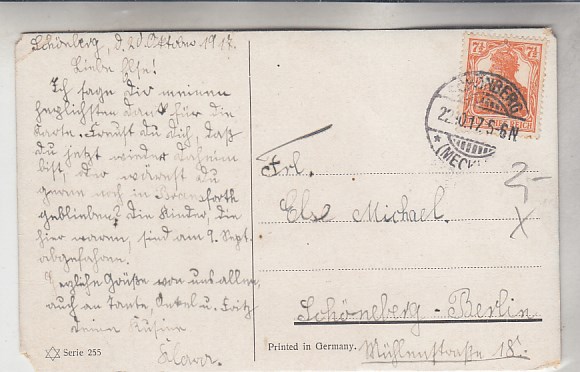 Schönberg, d. 20. Oktober 1917.
Liebe Else!
Ich sage Dir meinen
herzlichsten Dank für die
Karte. Freust Du Dich, daß
Du jetzt wieder daheim
bist oder wärest Du
gern noch in
geblieben? Die Kinder, die
hier waren, sind am 9. Sept.
abgefahren.
Herzliche Grüße von uns allen,
auch an Tante, Onkel u. Fritz
Deine Kusine
Klara.
Serie 255
7½ 7½
SCHÖNBERG
22.10.17.5-6N
* (MECK
REICH
Frl.
Else Michael.
2,-
X
Schöneberg-Berlin
Printed in Germany.
Mühlenstraße 18.